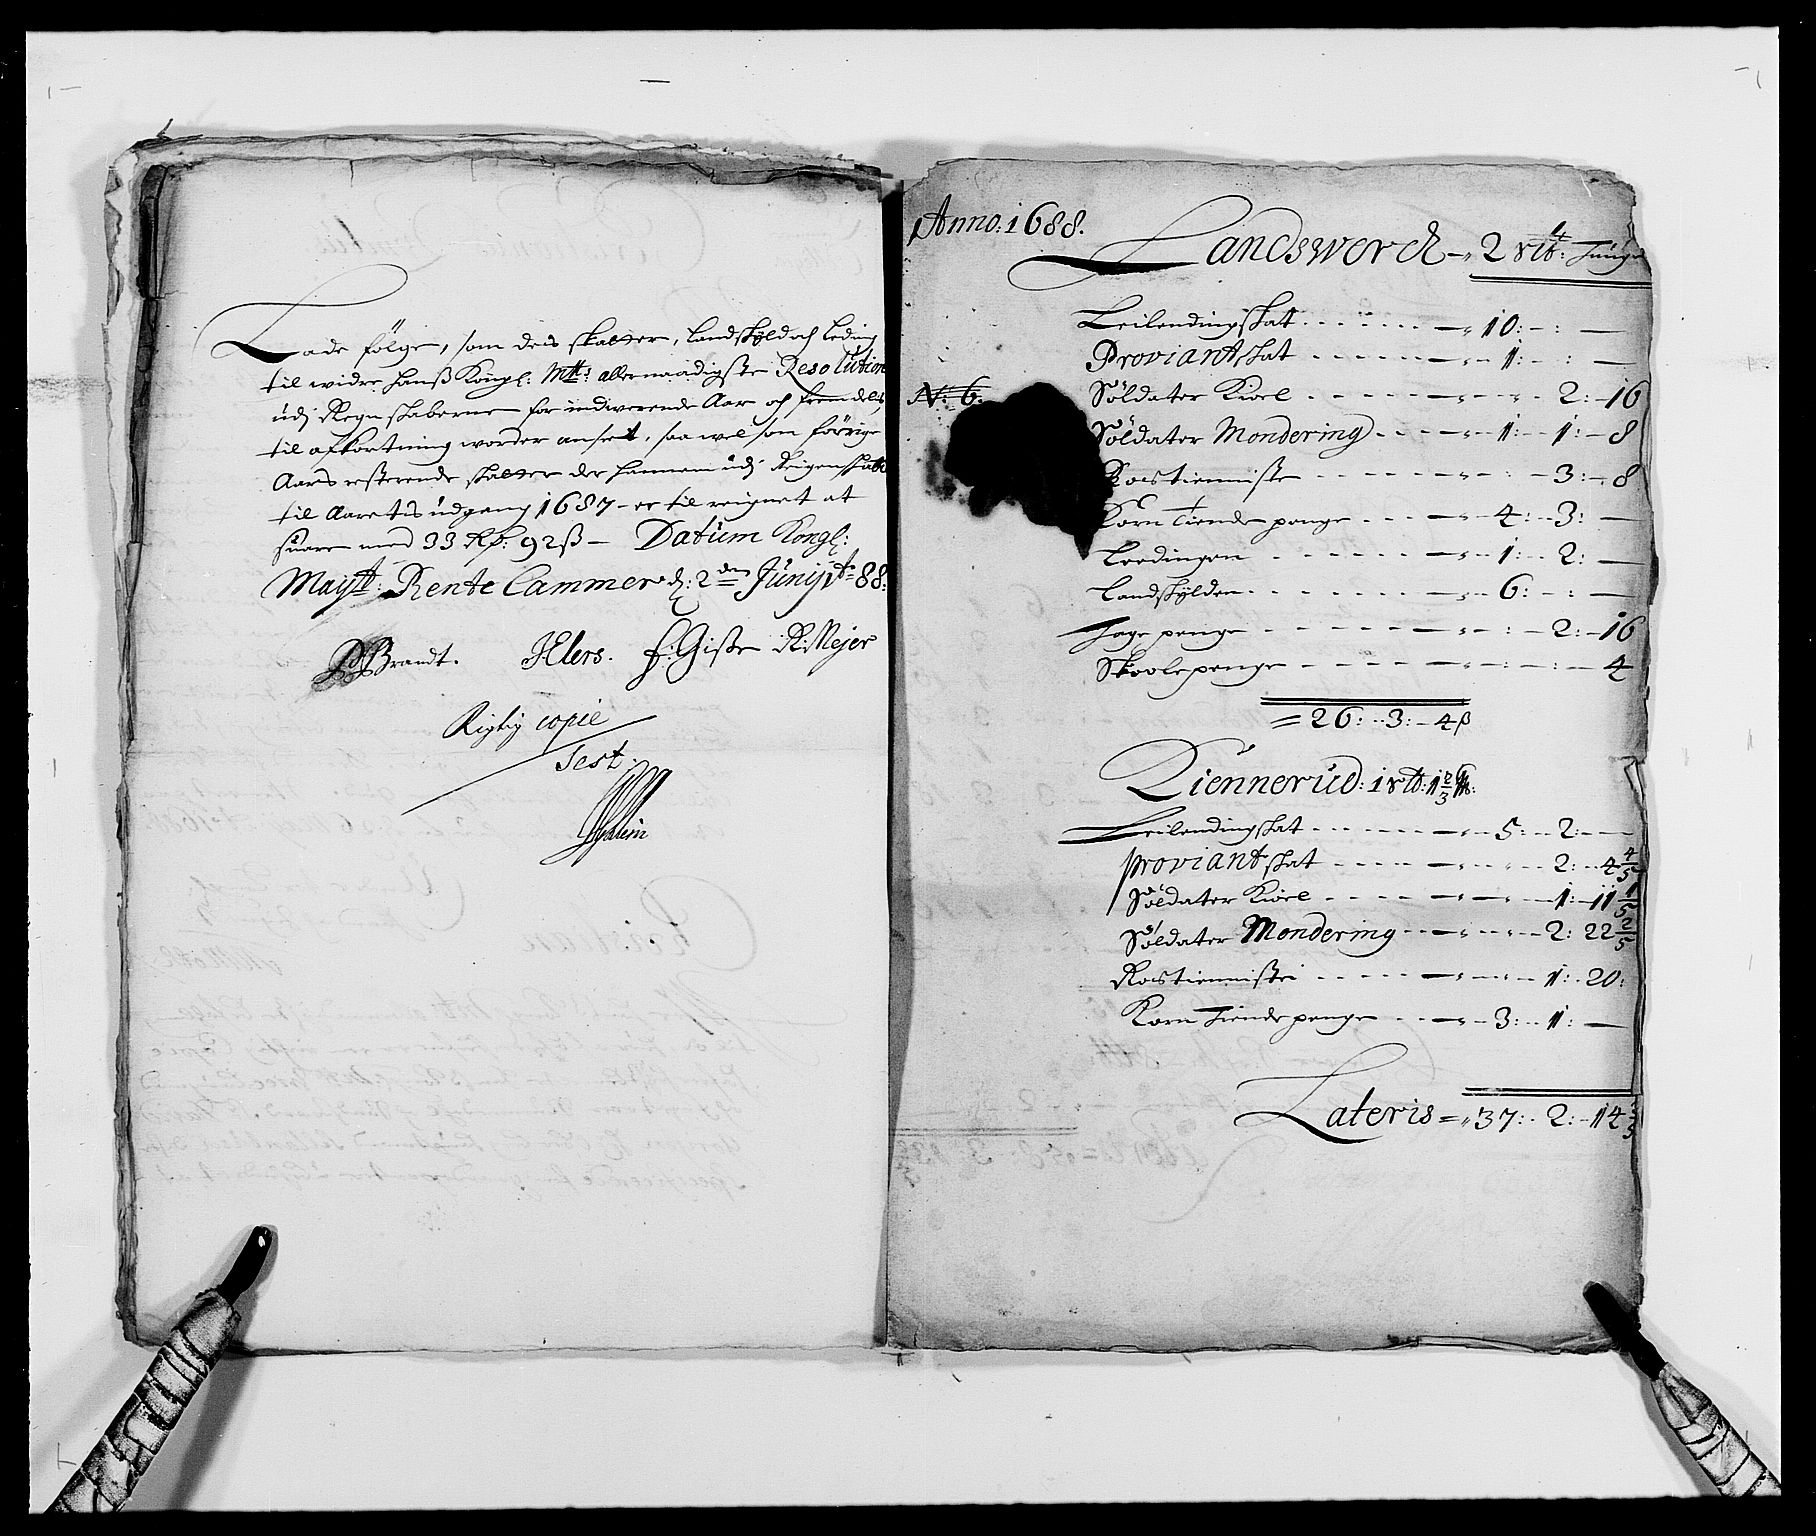 Lade følge, som deis skatter, Landskÿld och Leding
til widre hans Kongl: Mtts: allernaadigste Resolution
udj Regnskaberne for indwerende Aar och fremdelis
til afkortning worder anseet, saa wel som forrige
Aars resterende skatter der hannem udj Reigenskabet
til Aarets udgang 1687 – er til reignet at
suare med 33 Rß: 92 ß – Datum Kongl:
Maÿtt: Rente Cammer d: 2den Junij Ao 88:
PBrandt. HElers. f: Gisse R: Mejer
Rigtig copie
Test:
Anno: 1688.
Landswerck – 2 rtb: Tunge
Leilendingskat . . . . . . — „ 10: – : —
Proviant skat - - - - - - — „ – 1: – : —
No: 6.
Söldater Kioel . . . . . . — „ – „ – 2: – 16
Söldater Mondering . . . . — „ – 1: – 1: – 8
Rostienniste - - - - - - — „ – : – 3: – 8
Korn Tiende penge . . . . — „ – 4: – 3: —
Leedingen - - - - - - — „ – 1: – 2: —
Landskÿlden . . . . . . — „ – 6: – : —
Foge penge - - - - - - — „ – : – 2: – 16
Skoele penge - - - - - — „ – : – : – 4
= 26: – 3: – 4 ß
Tiennerud: 1 rtb: 1 2/3
Leilendingskat . . . . . — „ – 5: – 2: —
proviant skat - - - - — „ – „ – 2: – 4 4/5
Söldater Kioel - - - - — „ – „ – 1: – 11 1/5
Söldater Mondering - - - — „ – „ – 2: 22 2/5
Rostienniste - - - - - — „ – „ – 1: – 20:
Korn Tiende penge - - - — „ – 3: – 1: —
Lateris = „ 37: – 2: – 14 2/5